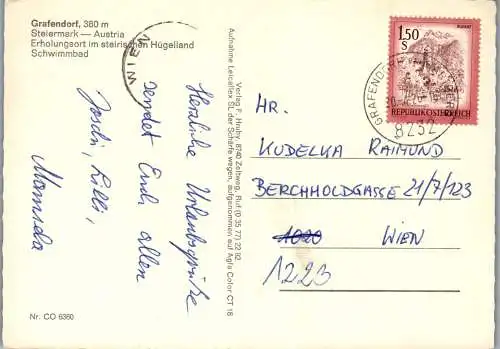 Grafendorf, 380 m
Steiermark — Austria
Erholungsort im steirischen Hügelland
Schwimmbad
WIEN
Herzliche Urlaubsgrüße
sendet Euch allen
Joschi, Lilli,
Manuela
Verlag F. Huber, 8740 Zeltweg, Ruf (0 35 77) 22 92
Aufnahme Leicaflex SL der Schärfe wegen, aufgenommen auf Agfa Color CT 18
1.50
S
REPUBLIK ÖSTERREICH
GRAFENDORF
8232
HR.
KUDELKA RAIMUND
BERCHHOLDGASSE 21/7/123
1020 WIEN
1223
Nr. CO 6360